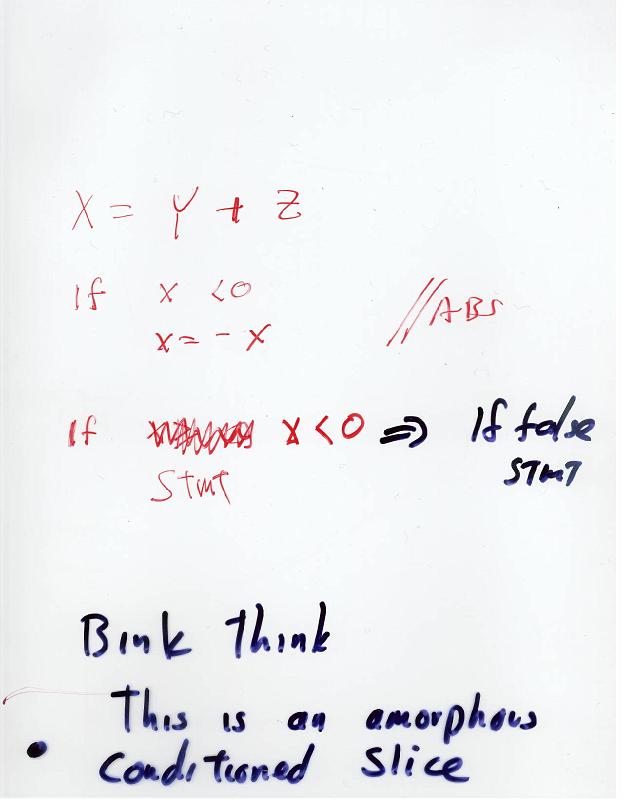 X = Y + Z
If x <0 //ABS
x = - x
If x < 0 => If false
Stmt STmT
Bink Think
This is an amorphous
Conditioned Slice